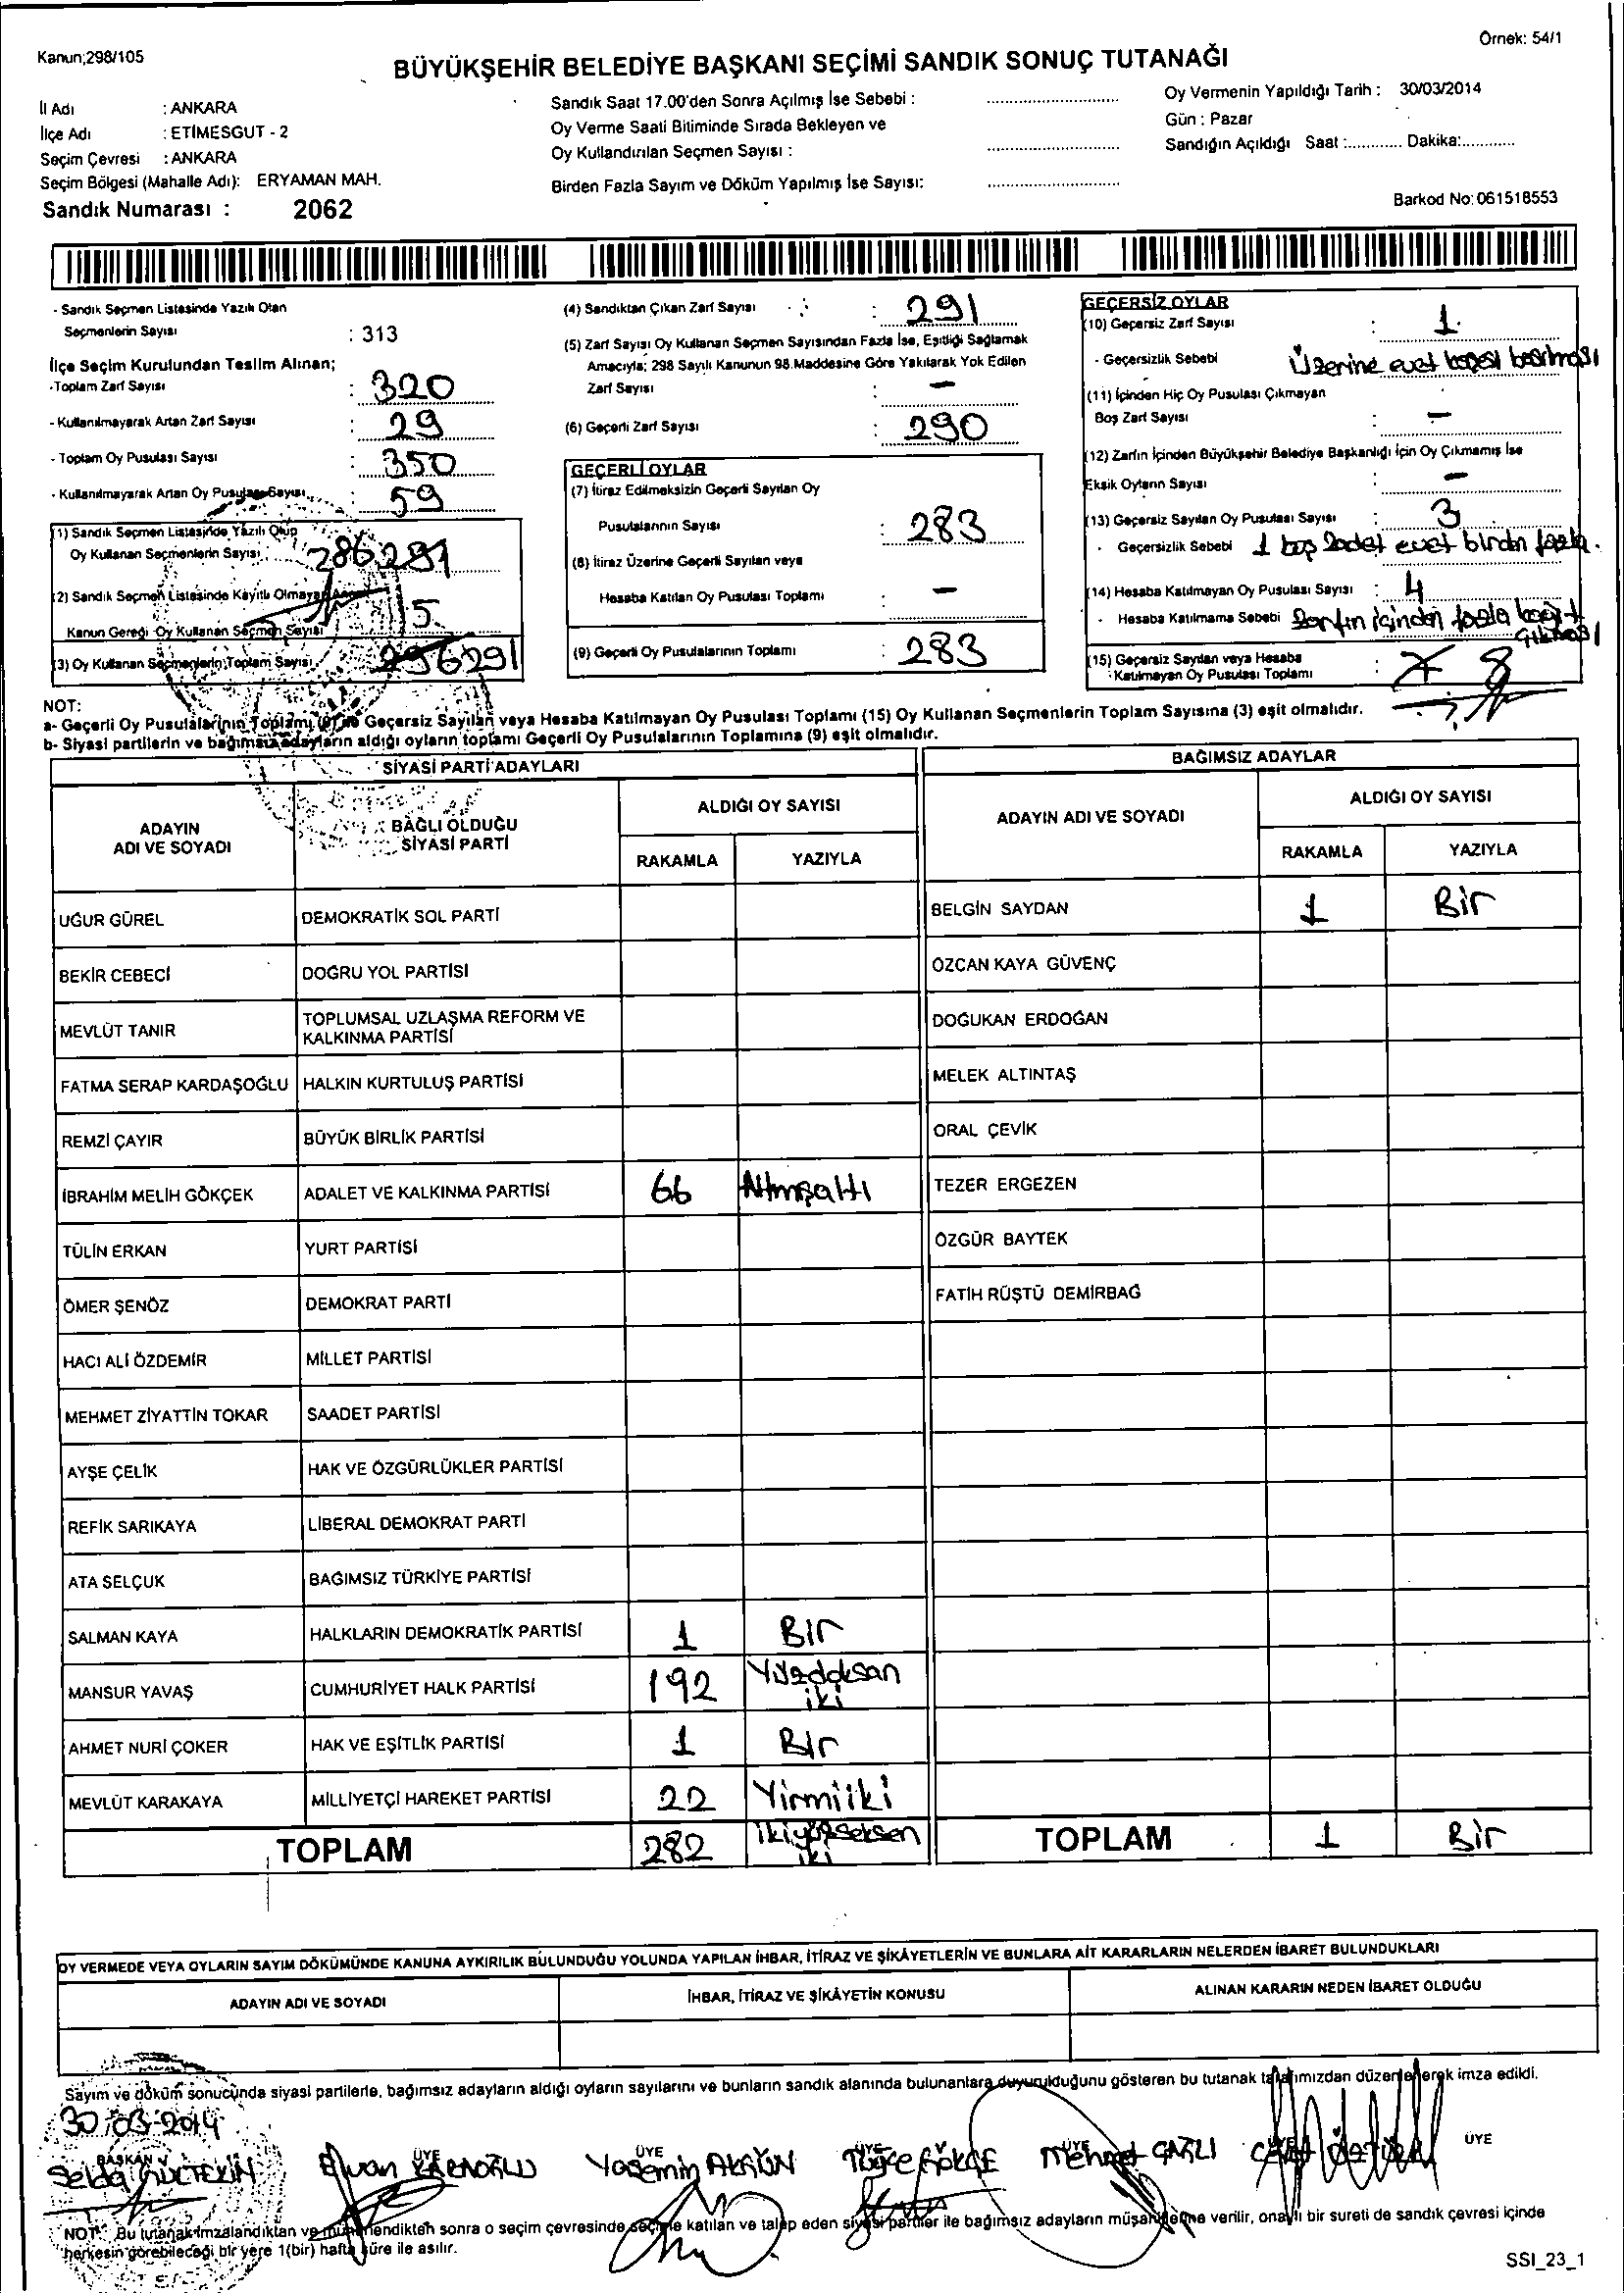 Kanun;298/105
Örnek: 54/1
BÜYÜKŞEHİR BELEDİYE BAŞKANI SEÇİMİ SANDIK SONUÇ TUTANAĞI
İl Adı : ANKARA
İlçe Adı : ETİMESGUT - 2
Seçim Çevresi : ANKARA
Seçim Bölgesi (Mahalle Adı): ERYAMAN MAH.
Sandık Numarası : 2062
Sandık Saat 17.00'den Sonra Açılmış İse Sebebi :
Oy Verme Saati Bitiminde Sırada Bekleyen ve
Oy Kullandırılan Seçmen Sayısı :
Birden Fazla Sayım ve Döküm Yapılmış İse Sayısı:
Oy Vermenin Yapıldığı Tarih : 30/03/2014
Gün : Pazar
Sandığın Açıldığı Saat :............ Dakika:............
Barkod No: 061518553
- Sandık Seçmen Listesinde Yazılı Olan
Seçmenlerin Sayısı : 313
İlçe Seçim Kurulundan Teslim Alınan;
-Toplam Zarf Sayısı : 320
- Kullanılmayarak Artan Zarf Sayısı : 29
- Toplam Oy Pusulası Sayısı : 350
- Kullanılmayarak Artan Oy Pusulası Sayısı : 59
(1) Sandık Seçmen Listesinde Yazılı Olup
Oy Kullanan Seçmenlerin Sayısı 286 291
(2) Sandık Seçmen Listesinde Kayıtlı Olmayan Ancak
Kanun Gereği Oy Kullanan Seçmen Sayısı
(3) Oy Kullanan Seçmenlerin Toplam Sayısı 296 291
(4) Sandıktan Çıkan Zarf Sayısı : 291
(5) Zarf Sayısı Oy Kullanan Seçmen Sayısından Fazla İse, Eşitliği Sağlamak
Amacıyla; 298 Sayılı Kanunun 98.Maddesine Göre Yakılarak Yok Edilen
Zarf Sayısı : -
(6) Geçerli Zarf Sayısı : 290
GEÇERLİ OYLAR
(7) İtiraz Edilmeksizin Geçerli Sayılan Oy
Pusulalarının Sayısı : 283
(8) İtiraz Üzerine Geçerli Sayılan veya
Hesaba Katılan Oy Pusulası Toplamı : -
(9) Geçerli Oy Pusulalarının Toplamı : 283
GEÇERSİZ OYLAR
(10) Geçersiz Zarf Sayısı : 1
- Geçersizlik Sebebi Üzerine evet kaşesi basılması
(11) İçinden Hiç Oy Pusulası Çıkmayan
Boş Zarf Sayısı : -
(12) Zarfın İçinden Büyükşehir Belediye Başkanlığı İçin Oy Çıkmamış İse
Eksik Oyların Sayısı : -
(13) Geçersiz Sayılan Oy Pusulası Sayısı : 3
- Geçersizlik Sebebi 1 boş 2 adet evet birden fazla.
(14) Hesaba Katılmayan Oy Pusulası Sayısı : 4
- Hesaba Katılmama Sebebi Zarfın içinden fazla kağıt
çıkması
(15) Geçersiz Sayılan veya Hesaba
Katılmayan Oy Pusulası Toplamı : 7 8
NOT:
a- Geçerli Oy Pusulalarının Toplamı (9) ile Geçersiz Sayılan veya Hesaba Katılmayan Oy Pusulası Toplamı (15) Oy Kullanan Seçmenlerin Toplam Sayısına (3) eşit olmalıdır.
b- Siyasi partilerin ve bağımsız adayların aldığı oyların toplamı Geçerli Oy Pusulalarının Toplamına (9) eşit olmalıdır.
SİYASİ PARTİ ADAYLARI
ADAYIN ADI VE SOYADI BAĞLI OLDUĞU SİYASİ PARTİ ALDIĞI OY SAYISI
RAKAMLA YAZIYLA
UĞUR GÜREL DEMOKRATİK SOL PARTİ
BEKİR CEBECİ DOĞRU YOL PARTİSİ
MEVLÜT TANIR TOPLUMSAL UZLAŞMA REFORM VE
KALKINMA PARTİSİ
FATMA SERAP KARDAŞOĞLU HALKIN KURTULUŞ PARTİSİ
REMZİ ÇAYIR BÜYÜK BİRLİK PARTİSİ
İBRAHİM MELİH GÖKÇEK ADALET VE KALKINMA PARTİSİ 66 Altmışaltı
TÜLİN ERKAN YURT PARTİSİ
ÖMER ŞENÖZ DEMOKRAT PARTİ
HACI ALİ ÖZDEMİR MİLLET PARTİSİ
MEHMET ZİYATTİN TOKAR SAADET PARTİSİ
AYŞE ÇELİK HAK VE ÖZGÜRLÜKLER PARTİSİ
REFİK SARIKAYA LİBERAL DEMOKRAT PARTİ
ATA SELÇUK BAĞIMSIZ TÜRKİYE PARTİSİ
SALMAN KAYA HALKLARIN DEMOKRATİK PARTİSİ 1 Bir
MANSUR YAVAŞ CUMHURİYET HALK PARTİSİ 192 Yüzdoksan
iki
AHMET NURİ ÇOKER HAK VE EŞİTLİK PARTİSİ 1 Bir
MEVLÜT KARAKAYA MİLLİYETÇİ HAREKET PARTİSİ 22 Yirmiiki
TOPLAM 282 ikiyüzseksen
iki
BAĞIMSIZ ADAYLAR
ADAYIN ADI VE SOYADI ALDIĞI OY SAYISI
RAKAMLA YAZIYLA
BELGİN SAYDAN 1 Bir
ÖZCAN KAYA GÜVENÇ
DOĞUKAN ERDOĞAN
MELEK ALTINTAŞ
ORAL ÇEVİK
TEZER ERGEZEN
ÖZGÜR BAYTEK
FATİH RÜŞTÜ DEMİRBAĞ
TOPLAM 1 Bir
OY VERMEDE VEYA OYLARIN SAYIM DÖKÜMÜNDE KANUNA AYKIRILIK BULUNDUĞU YOLUNDA YAPILAN İHBAR, İTİRAZ VE ŞİKÂYETLERİN VE BUNLARA AİT KARARLARIN NELERDEN İBARET BULUNDUKLARI
ADAYIN ADI VE SOYADI İHBAR, İTİRAZ VE ŞİKÂYETİN KONUSU ALINAN KARARIN NEDEN İBARET OLDUĞU
Sayım ve döküm sonucunda siyasi partilerle, bağımsız adayların aldığı oyların sayılarını ve bunların sandık alanında bulunanlara duyurulduğunu gösteren bu tutanak tarafımızdan düzenlenerek imza edildi.
30-03-2014
BAŞKAN ÜYE ÜYE ÜYE ÜYE ÜYE ÜYE
Selda Yasemin Tuğçe GÖKÇE Mehmet
NOT: Bu tutanak imzalandıktan ve mühürlendikten sonra o seçim çevresinde seçime katılan ve talep eden siyasi partiler ile bağımsız adayların müşahitlerine verilir, onaylı bir sureti de sandık çevresi içinde
herkesin görebileceği bir yere 1(bir) hafta süre ile asılır.
SSI_23_1